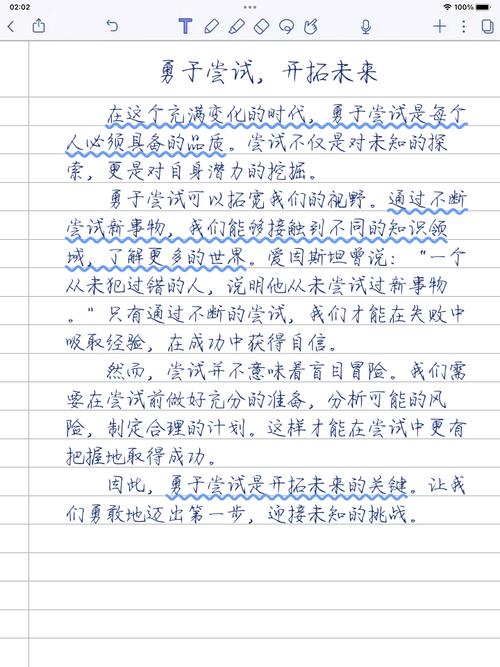 02:02
100%
勇于尝试，开拓未来
在这个充满变化的时代，勇于尝试是每个
人必须具备的品质。尝试不仅是对未知的探
索，更是对自身潜力的挖掘。
勇于尝试可以拓宽我们的视野。通过不断
尝试新事物，我们能够接触到不同的知识领
域，了解更多的世界。爱因斯坦曾说：“一个
从未犯过错的人，说明他从未尝试过新事物
。”只有通过不断的尝试，我们才能在失败中
吸取经验，在成功中获得自信。
然而，尝试并不意味着盲目冒险。我们需
要在尝试前做好充分的准备，分析可能的风
险，制定合理的计划。这样才能在尝试中更有
把握地取得成功。
因此，勇于尝试是开拓未来的关键。让我
们勇敢地迈出第一步，迎接未知的挑战。